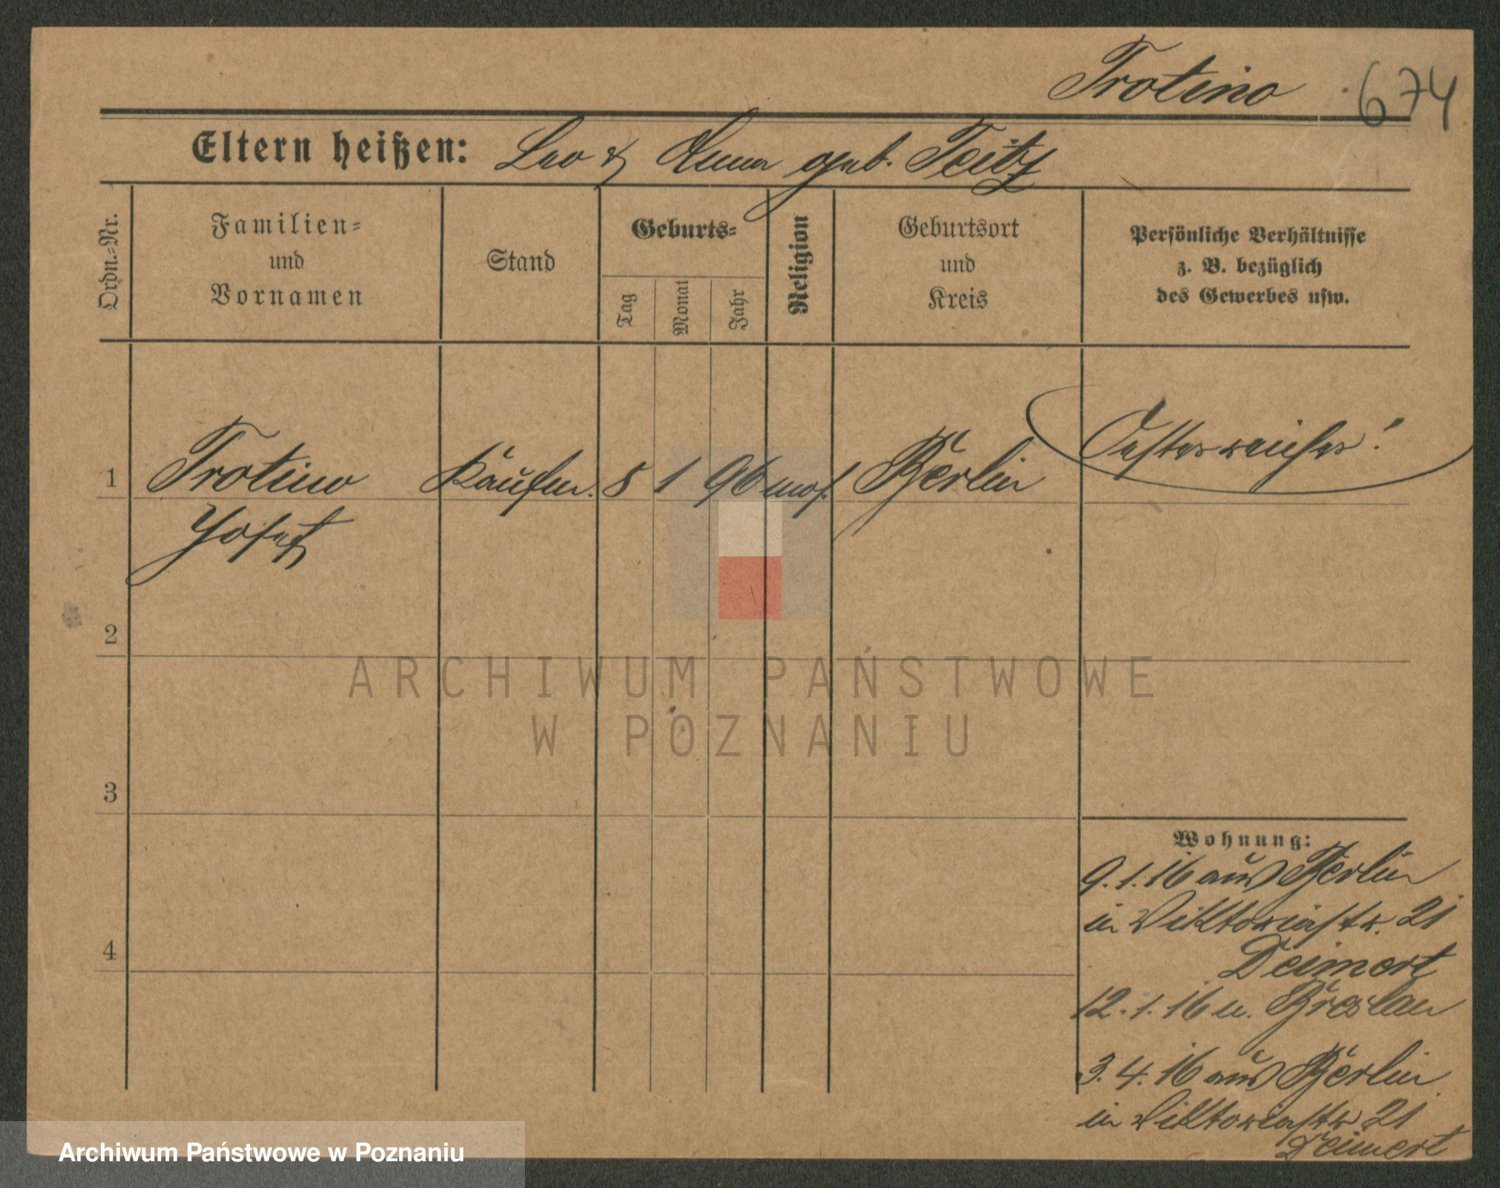 Trotino 674
Eltern heißen: Leo & Anna geb. Teitz
Ordn.-Nr.
Familien-
und
Vornamen
Stand
Geburts-
Tag
Monat
Jahr
Religion
Geburtsort
und
Kreis
Persönliche Verhältnisse
z. B. bezüglich
des Gewerbes usw.
1 Trotino Kaufm. 8 1 96 mos. Berlin Oesterreicher!
Josef
2
3
4
ARCHIWUM PAŃSTWOWE
W POZNANIU
Wohnung:
9.1.16 aus Berlin
in Viktoriastr. 21
Deimert
12.1.16 n. Breslau
3.4.16 aus Berlin
in Viktoriastr. 21
Deimert
Archiwum Państwowe w Poznaniu